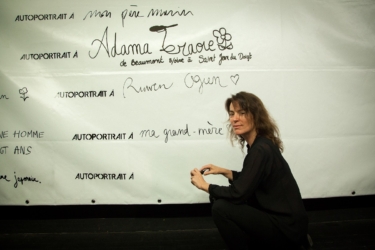 AUTOPORTRAIT À mon père marin
Adama Traoré
de Beaumont s/Oise à Saint Jean du Doigt
AUTOPORTRAIT À Ruwen Ogien
NE HOMME AUTOPORTRAIT À ma grand-mère
GT ANS
AUTOPORTRAIT À